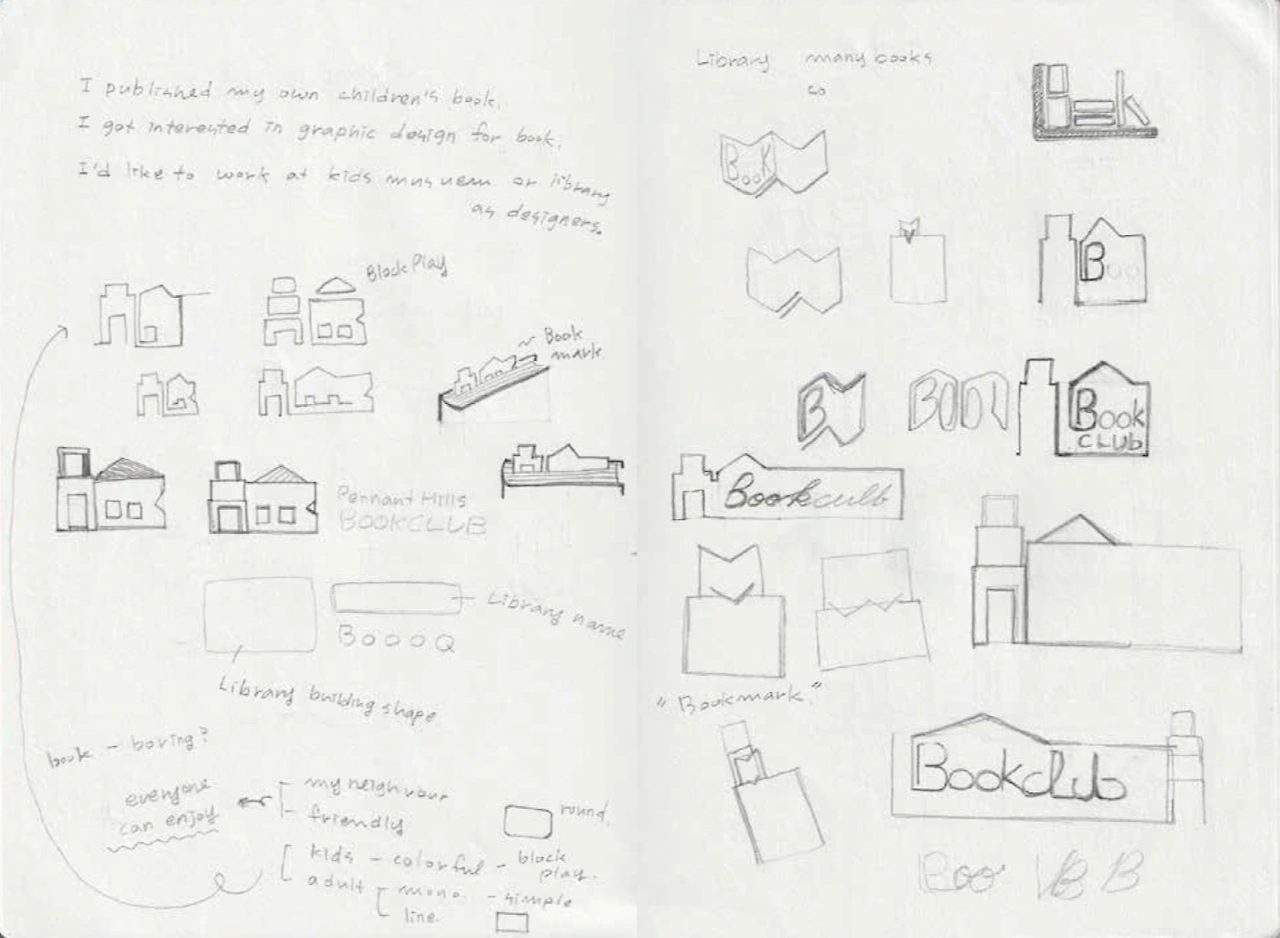 I published my own children's book.
I got interested in graphic design for book.
I'd like to work at kids musuem or library
as designers.
Block Play
Book
mark
Pennant Hills
BOOKCLUB
Library name
BOOOQ
Library building shape
book - boring?
everyone
can enjoy
my neighbour
friendly
round.
kids - colorful - block
play.
adult
mono. - simple
line.
Library many books
so
Book
Boo
B
BOOK
Book
CLUB
Bookculb
"Bookmark."
Bookclub
Boo B B